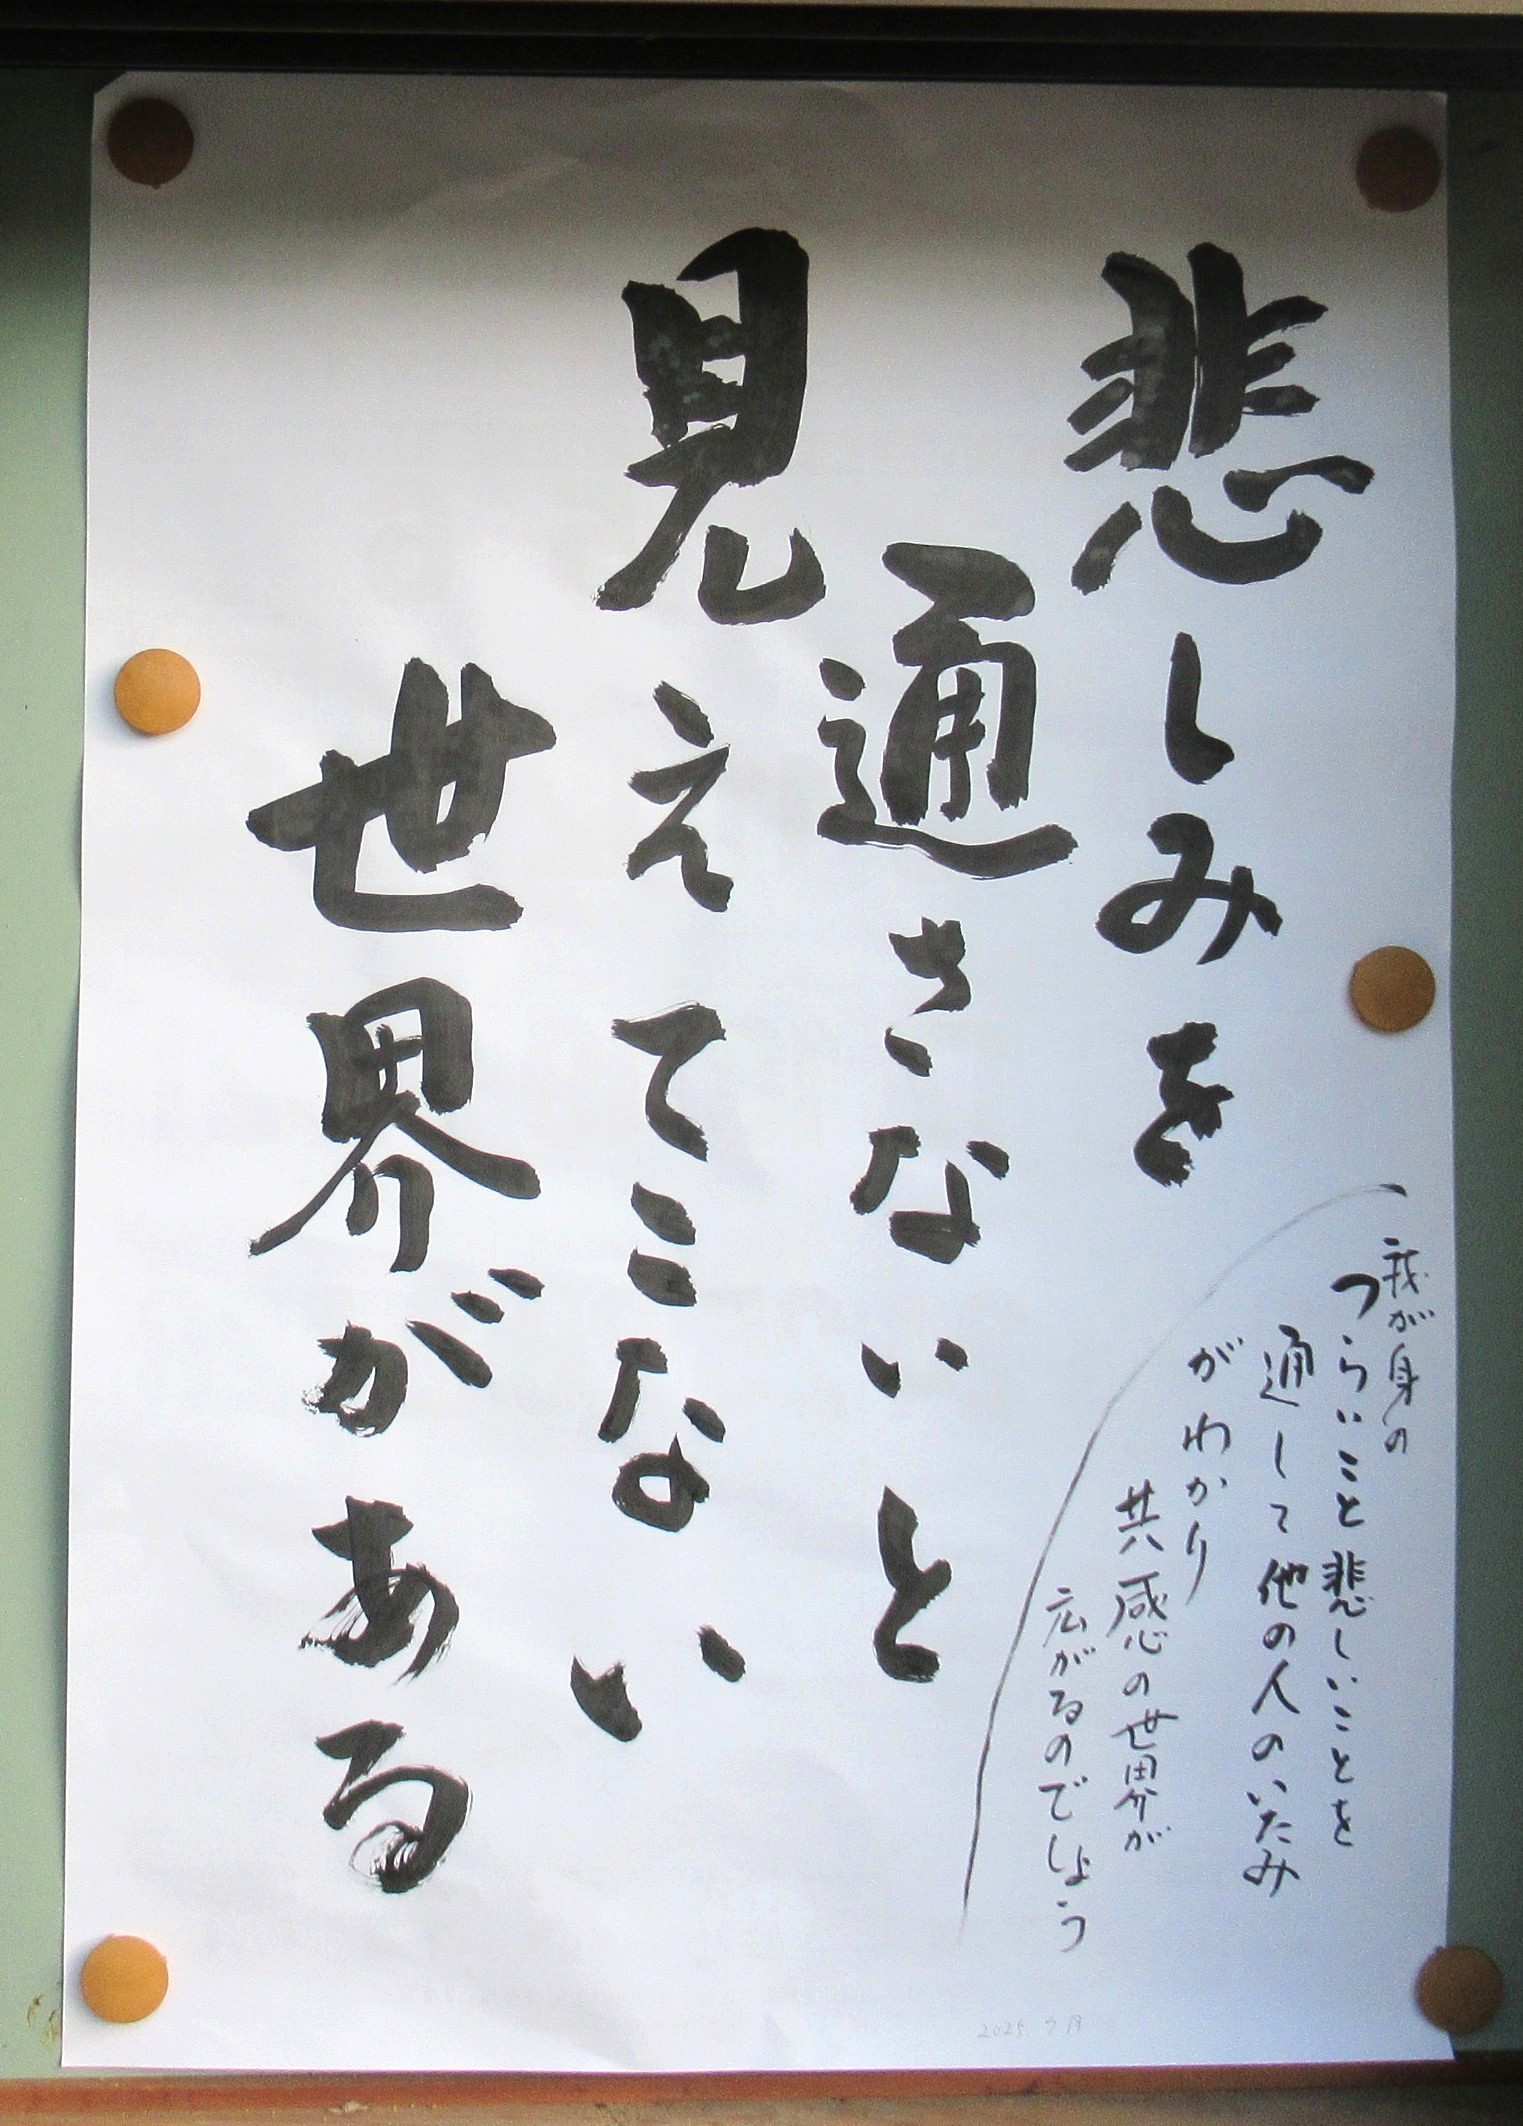 悲しみを
通さないと
見えてこない
世界がある
我が身の
つらいこと悲しいことを
通して他の人のいたみ
がわかり
共感の世界が
広がるのでしょう